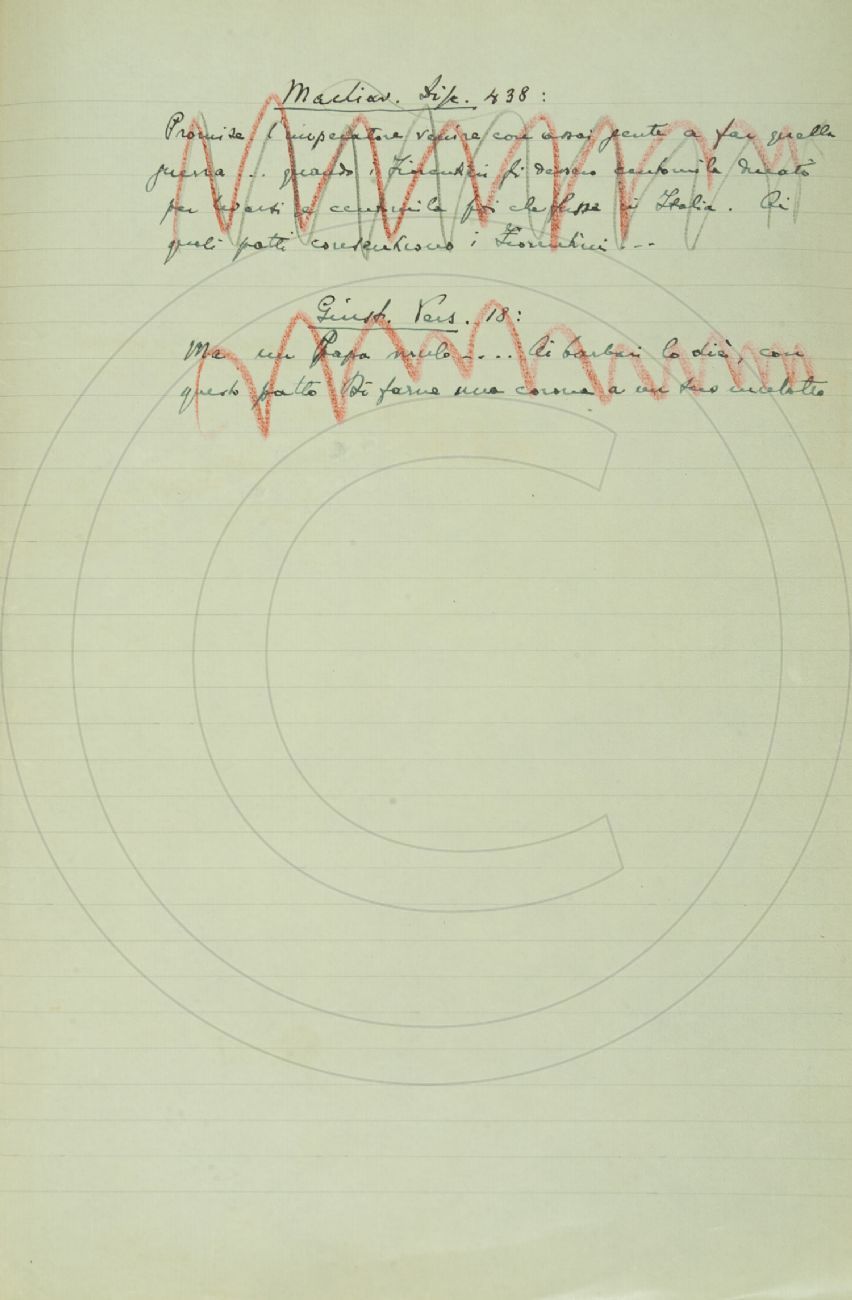 Machiav. Disc. 438:
Promise l'imperatore venire con assai gente a far quella
guerra ... quando i Fiorentini gli dessero centomila ducati
per levarsi e centomila poi che fusse in Italia. Ai
quali patti consentirono i Fiorentini ...
Giust. Vers. 18:
Ma un Papa .... Ai barberi lo diè, con
questo patto Di farne una corona a un suo mulatto